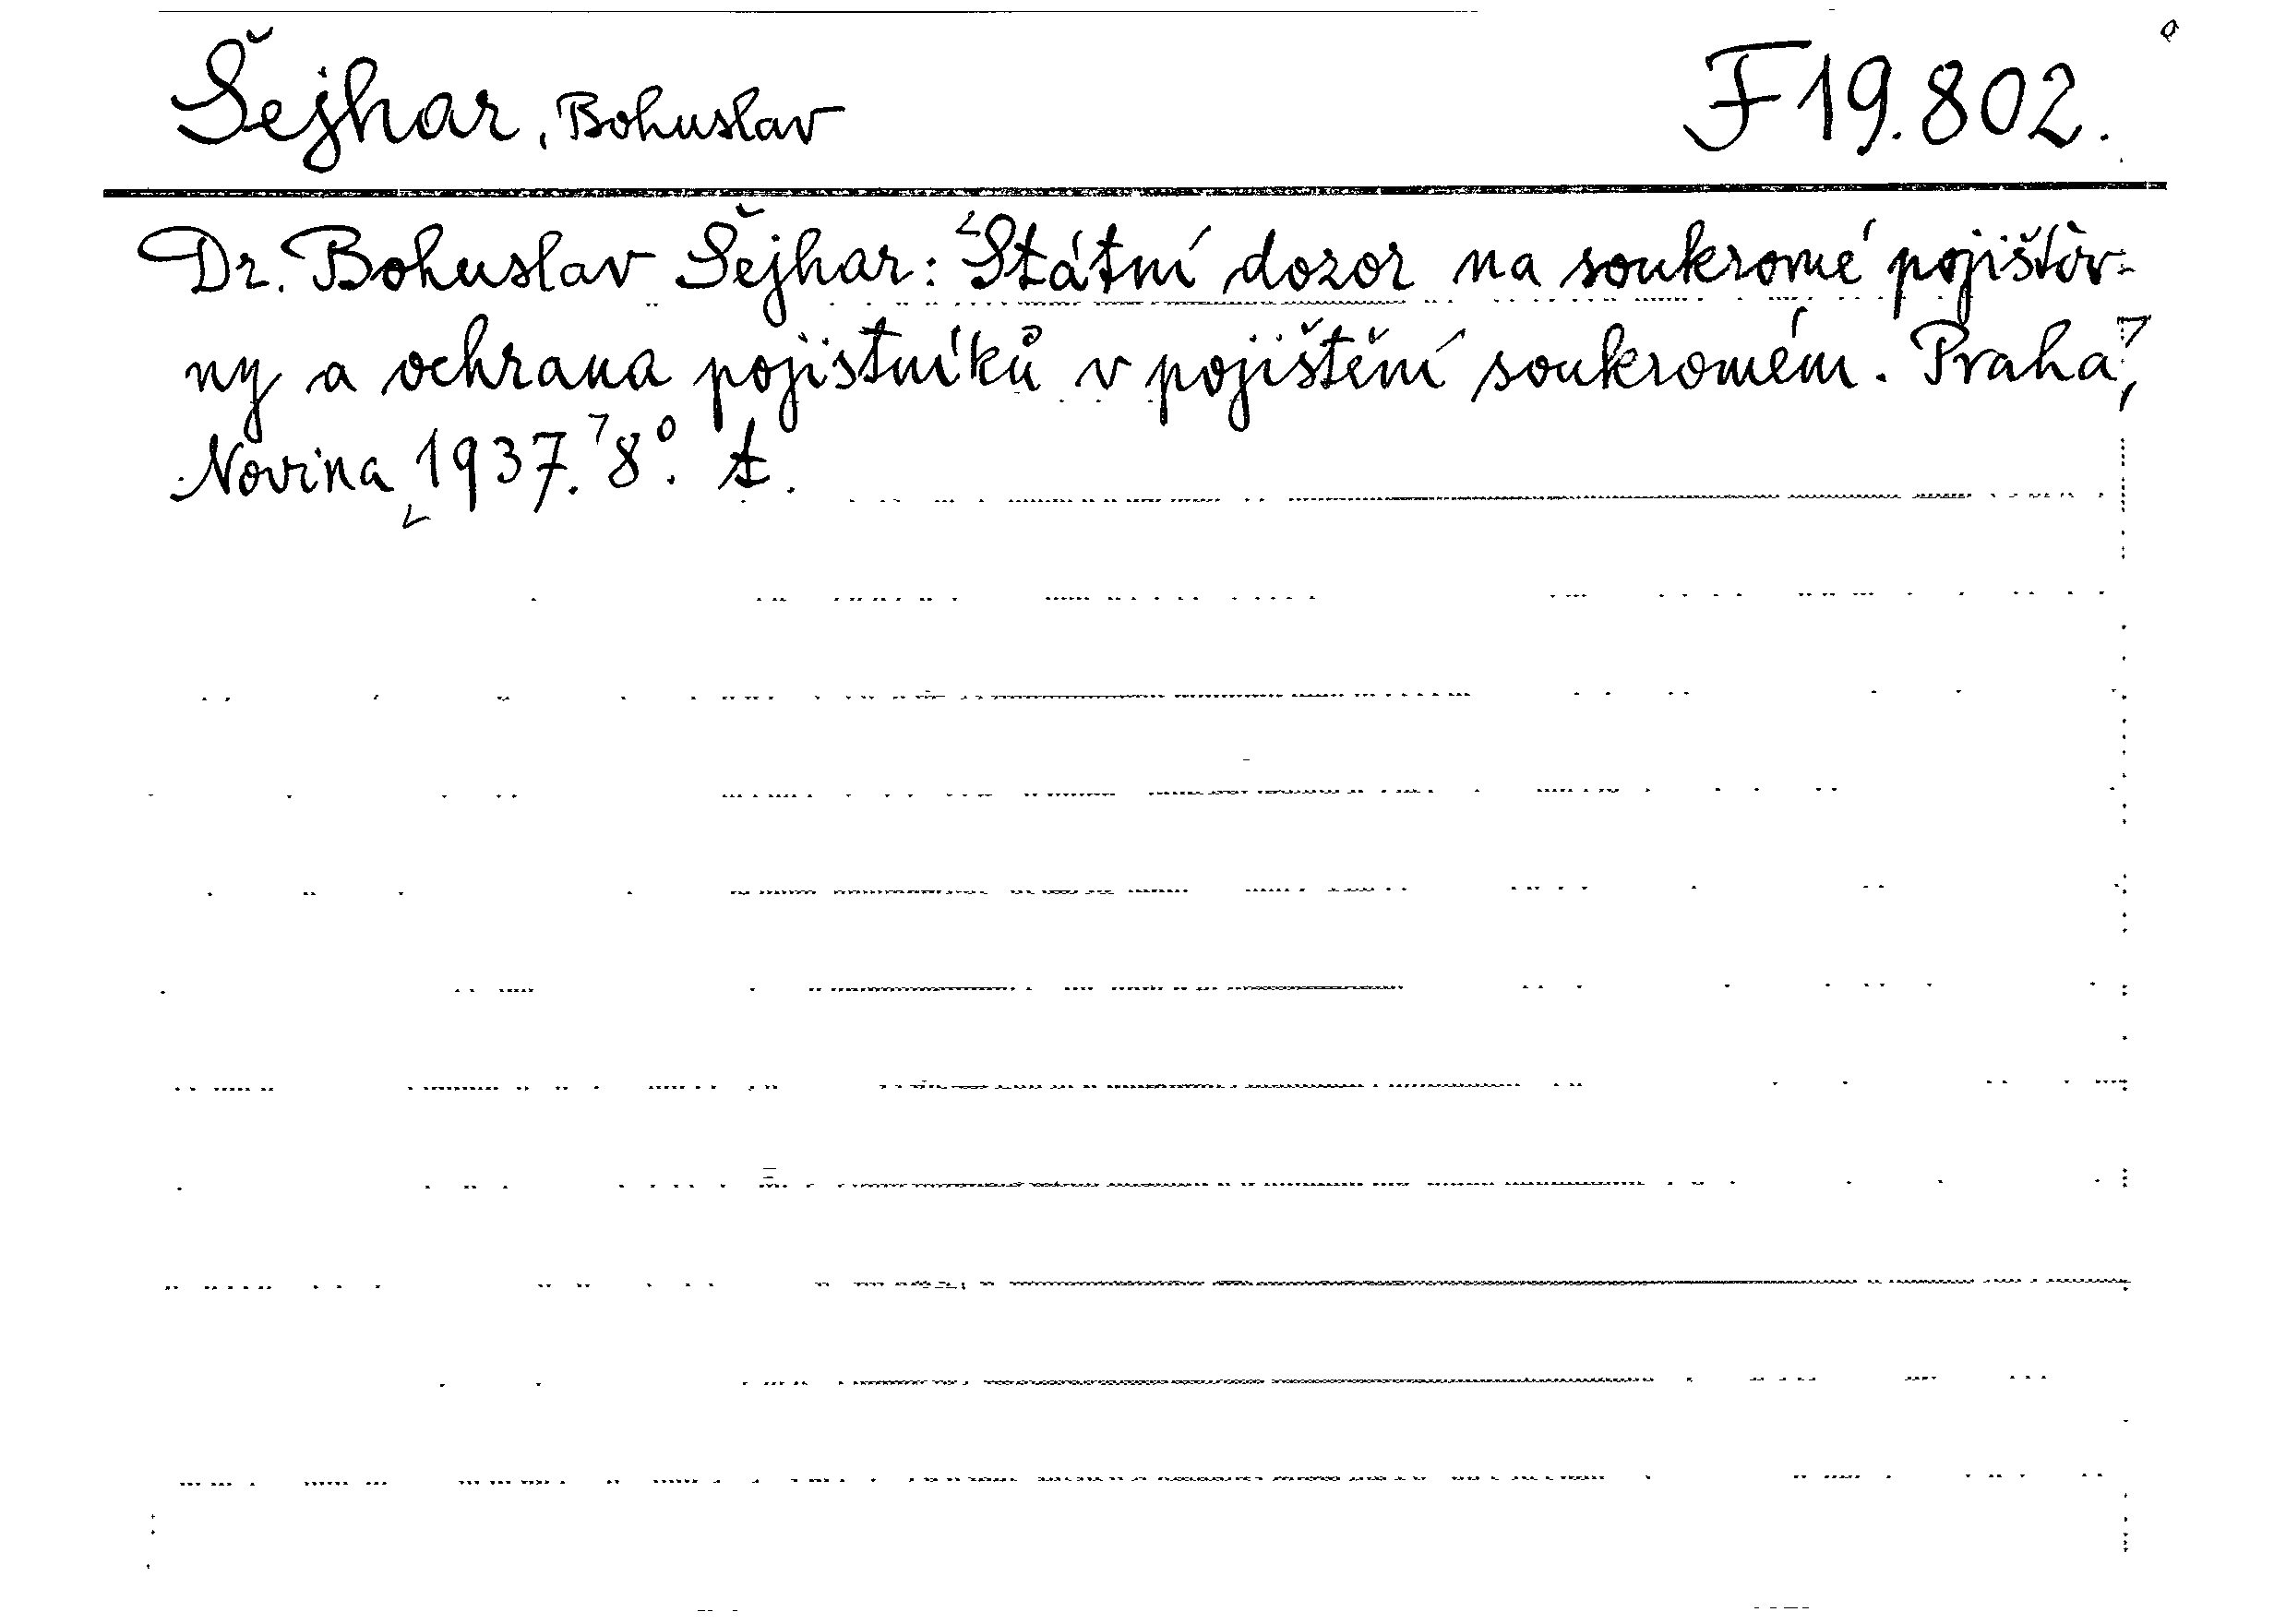 Šejhar, Bohuslav F 19.802.
Dr. Bohuslav Šejhar: Státní dozor na soukromé pojišťov-
ny a ochrana pojistníků v pojištění soukromém. Praha,
Novina 1937. 8°. A.